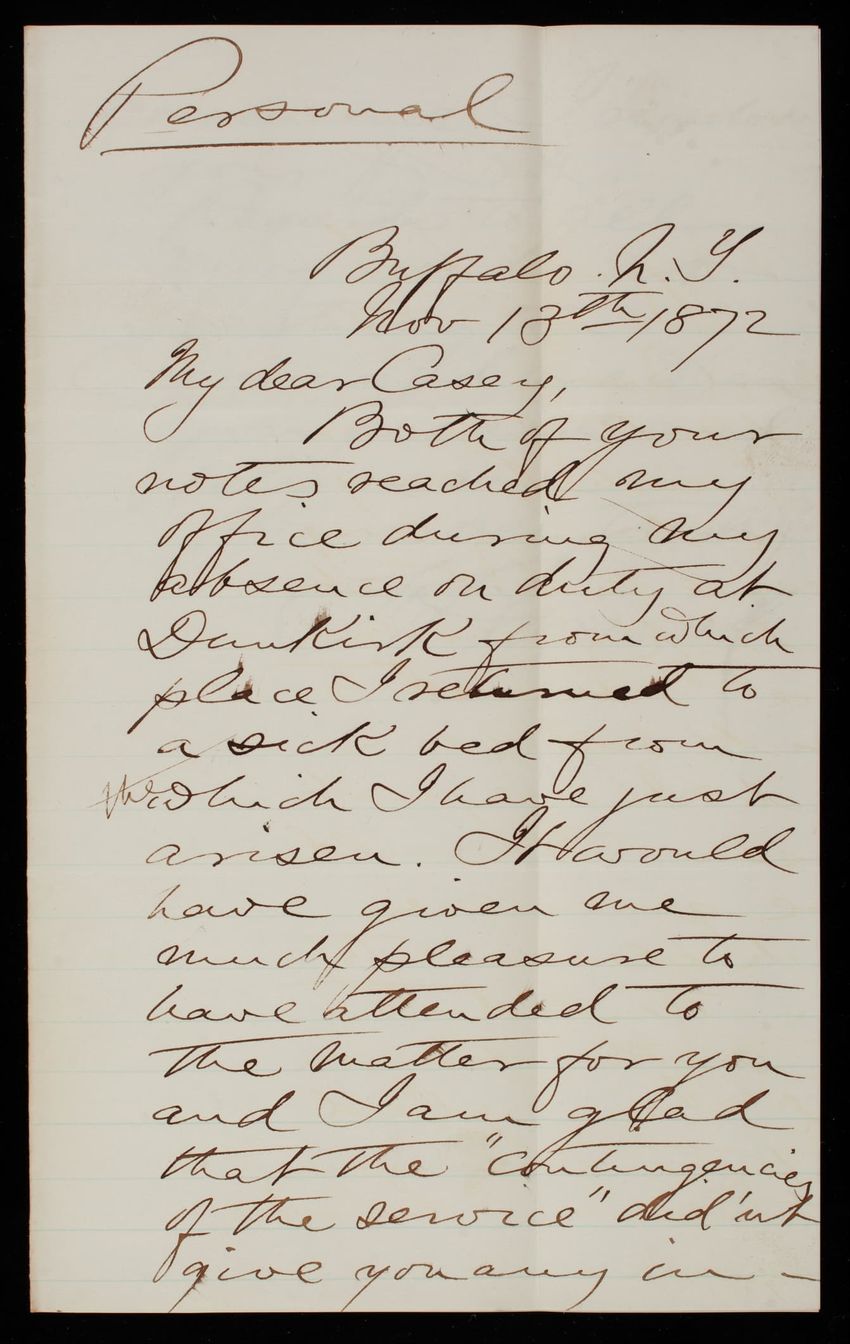 Personal
Buffalo. N.Y.
Nov 13th 1872
My dear Casey,
Both of your
notes reached my
office during my
absence on duty at
Dunkirk from which
place I returned to
a sick bed from
which I have just
arisen. It would
have given me
much pleasure to
have attended to
the matter for you
and I am glad
that the "contingencies
of the service" did'nt
give you any in-